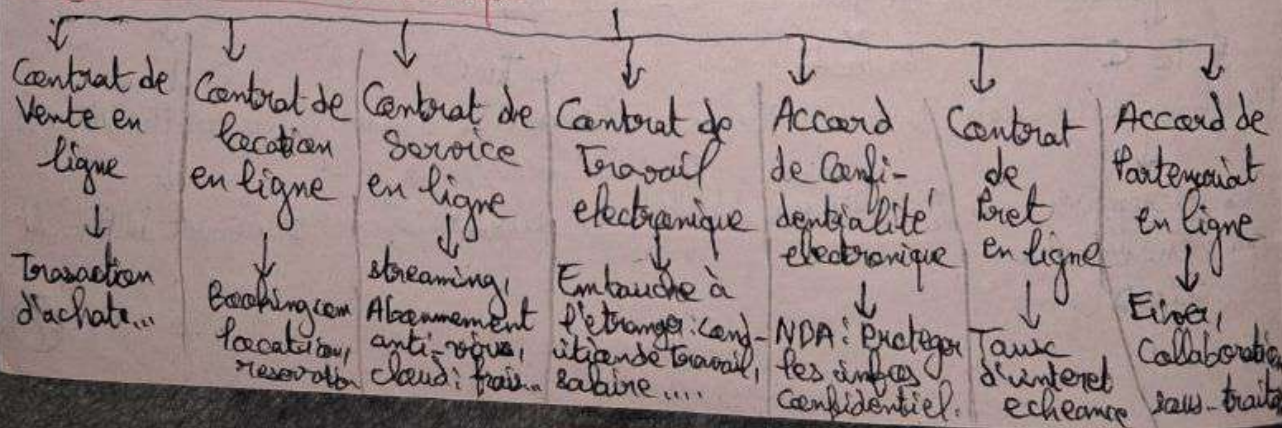 Contrat de
Vente en
ligne
Trasaction
d'achats...
Contrat de
location
en ligne
Booking.com
location,
reservation
Contrat de
Service
en ligne
streaming,
Abonnement
anti-virus,
Cloud : frais...
Contrat de
Travail
electronique
Embauche à
l'etranger : cond-
ition de travail,
salaire ....
Accord
de Confi-
dentialité
electronique
NDA : Proteger
les infos
Confidentiel.
Contrat
de
Pret
en ligne
Taux
d'interet
echeance
Accord de
Partenariat
en ligne
Collaboration
sous-traita